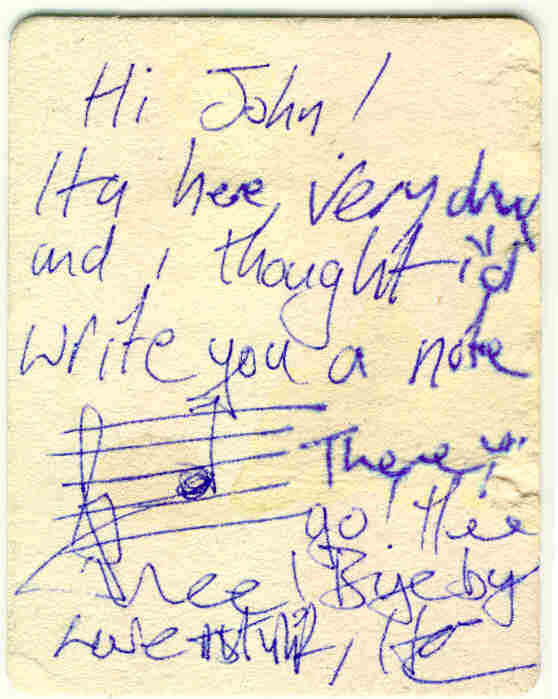 Hi John!
Ita here, very dry
and i thought i'd
write you a note
There
go! Hee
hee! Bye by
Love Ita